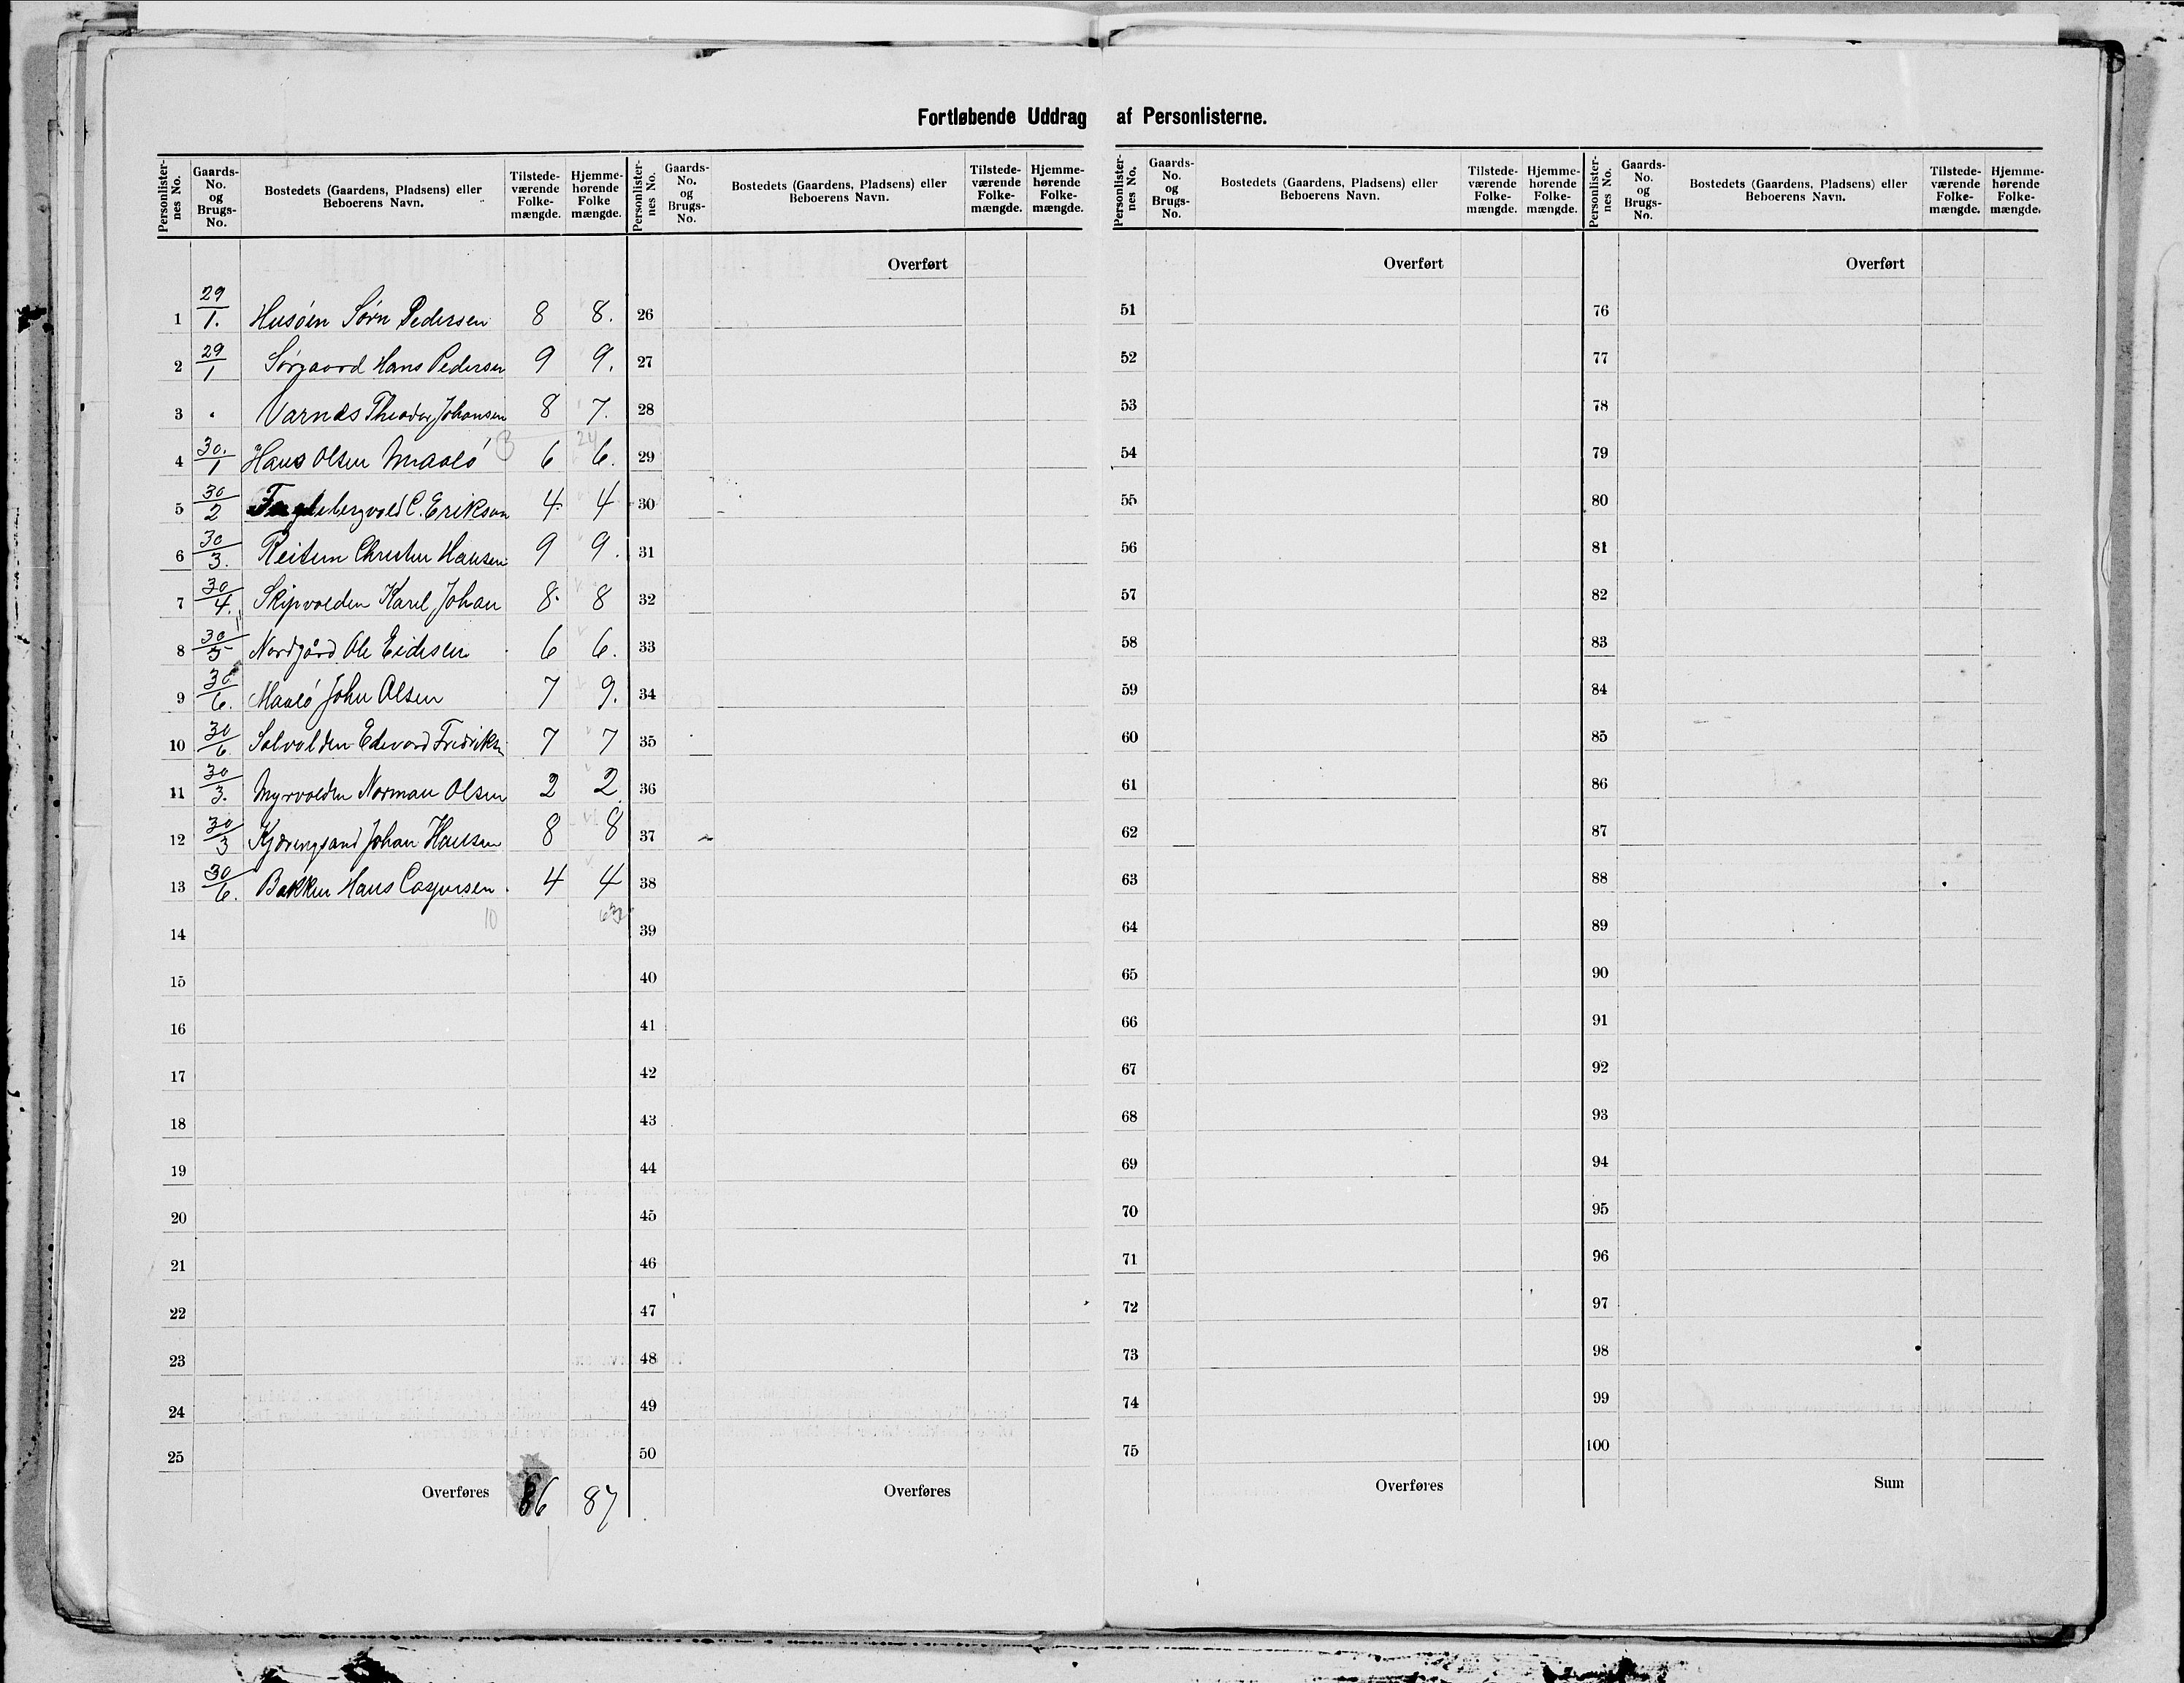 Fortløbende Uddrag af Personlisterne.
Personlister-nes No. Gaards-No. og Brugs-No. Bostedets (Gaardens, Pladsens) eller Beboerens Navn. Tilstede-værende Folke-mængde. Hjemme-hørende Folke mængde.
Personlister-nes No. Gaards-No. og Brugs-No. Bostedets (Gaardens, Pladsens) eller Beboerens Navn. Tilstede-værende Folke-mængde. Hjemme-hørende Folke-mængde.
Personlister-nes No. Gaards-No. og Brugs-No. Bostedets (Gaardens, Pladsens) eller Beboerens Navn. Tilstede-værende Folke-mængde. Hjemme-hørende Folke-mængde.
Personlister-nes No. Gaards-No. og Brugs-No. Bostedets (Gaardens, Pladsens) eller Beboerens Navn. Tilstede-værende Folke-mængde. Hjemme-hørende Folke-mængde.
1 29/1. Husöen Sörn Pedersen 8 8.
2 29/1 Sörgaard Hans Pedersen 9 9.
3 . Varnæs Theodor Johansen 8 7.
3 24
4 30./1 Hans Olsen Maalö 6 6.
5 30/2 C. Eriksen 4. 4
6 30/3. Reitem Christen Hansen 9 9.
7 30/4. Skipvolden Karel Johan 8. 8
8 30/5 Nordgård Ole Eidesen 6 6.
9 30/6. Maalö John Olsen 7 9.
10 30/6 Solvolden Edevard Fredriks 7 7
11 30/3. Myrvolden Norman Olsen 2 2
12 30/3 Kjæringsand Johan Hansen 8 8
13 30/6. Bakken Hans Caspersen. 4 4
10 63
14
15
16
17
18
19
20
21
22
23
24
25
Overføres 86 87
Overført
26
27
28
29
30
31
32
33
34
35
36
37
38
39
40
41
42
43
44
45
46
47
48
49
50
Overføres
Overført
51
52
53
54
55
56
57
58
59
60
61
62
63
64
65
66
67
68
69
70
71
72
73
74
75
Overføres
Overført
76
77
78
79
80
81
82
83
84
85
86
87
88
89
90
91
92
93
94
95
96
97
98
99
100
Sum